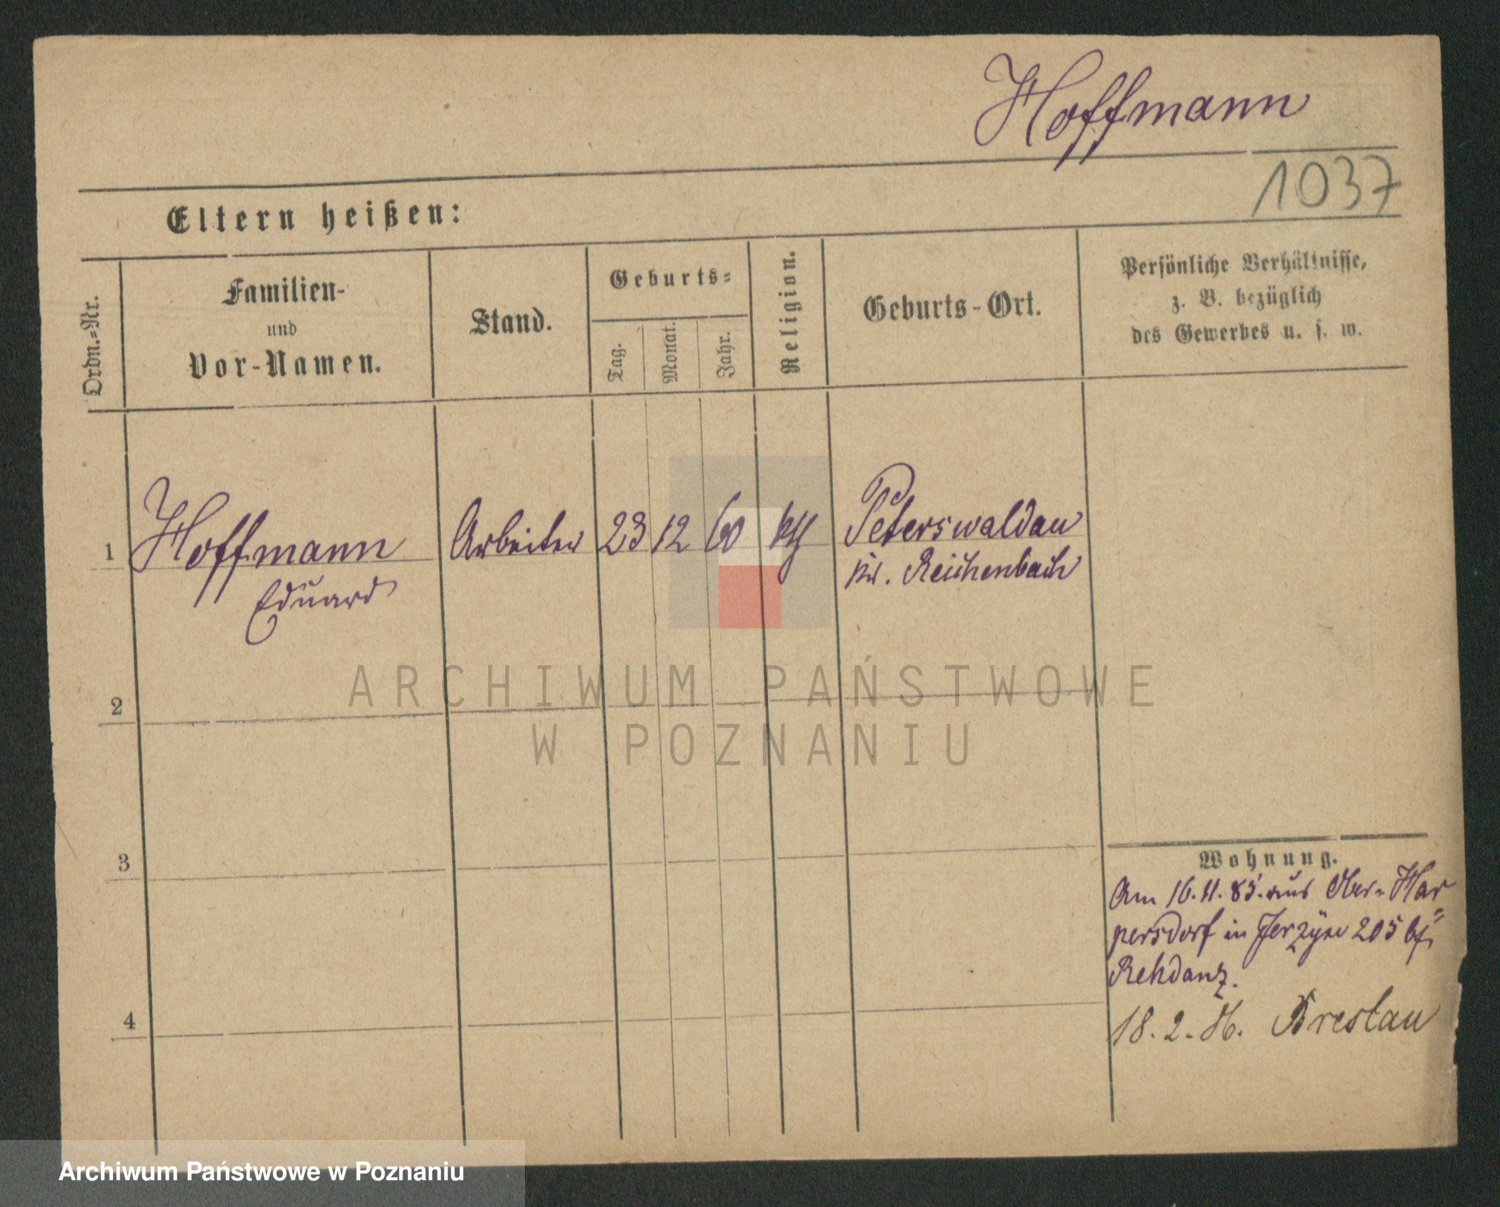 Hoffmann
1037
Eltern heißen:
Ordn.-Nr.
Familien-
und
Vor-Namen.
Stand.
Geburts-
Tag.
Monat.
Jahr.
Religion.
Geburts-Ort.
Persönliche Verhältnisse,
z. B. bezüglich
des Gewerbes u. s. w.
1
Hoffmann
Eduard
Arbeiter
23
12
60
kth
Peterswaldau
Kr. Reichenbach
2
3
4
Wohnung.
Am 16.11.85. aus Ober-Har
persdorf in Jerzyce 205 bei
Rehdanz.
18.2.86. Breslau
ARCHIWUM PAŃSTWOWE
W POZNANIU
Archiwum Państwowe w Poznaniu